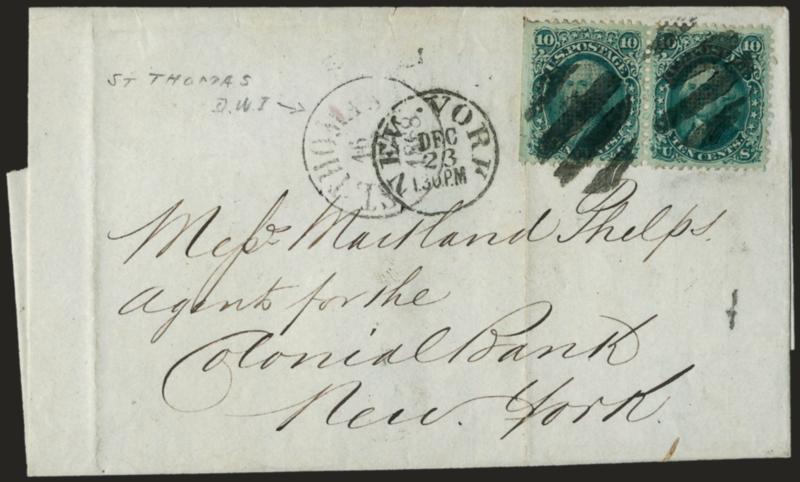 10 U.S. POSTAGE 10
10 10
TEN CENTS
U TEN CENTS S
ST THOMAS
D.W.I →
ST. THOMAS
16
1868
NEW YORK
DEC
23
1.30 P.M
Messrs Maitland Phelps.
Agents for the
Colonial Bank
New. York.